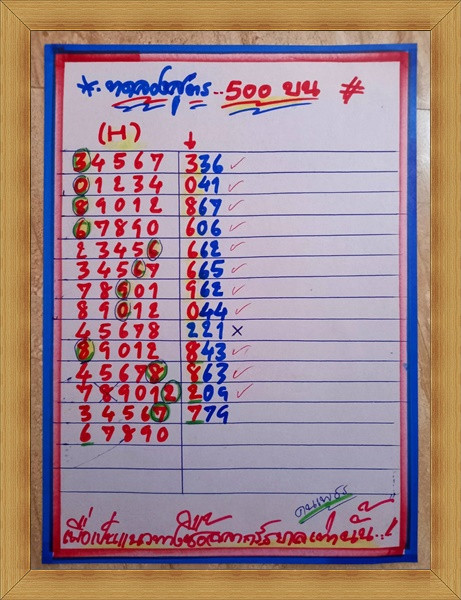 * ทดลองสูตร.. 500 บน #
(H) ↓
34567 336 ✓
01234 041 ✓
89012 867 ✓
67890 606 ✓
23456 662 ✓
34567 665 ✓
78901 962 ✓
89012 044 ✓
45678 221 ×
89012 843 ✓
45678 863 ✓
789012 209 ✓
34567 779
67890
คนเพชร
เพื่อเป็นแนวทางซื้อสลากรัฐบาลเท่านั้น..!